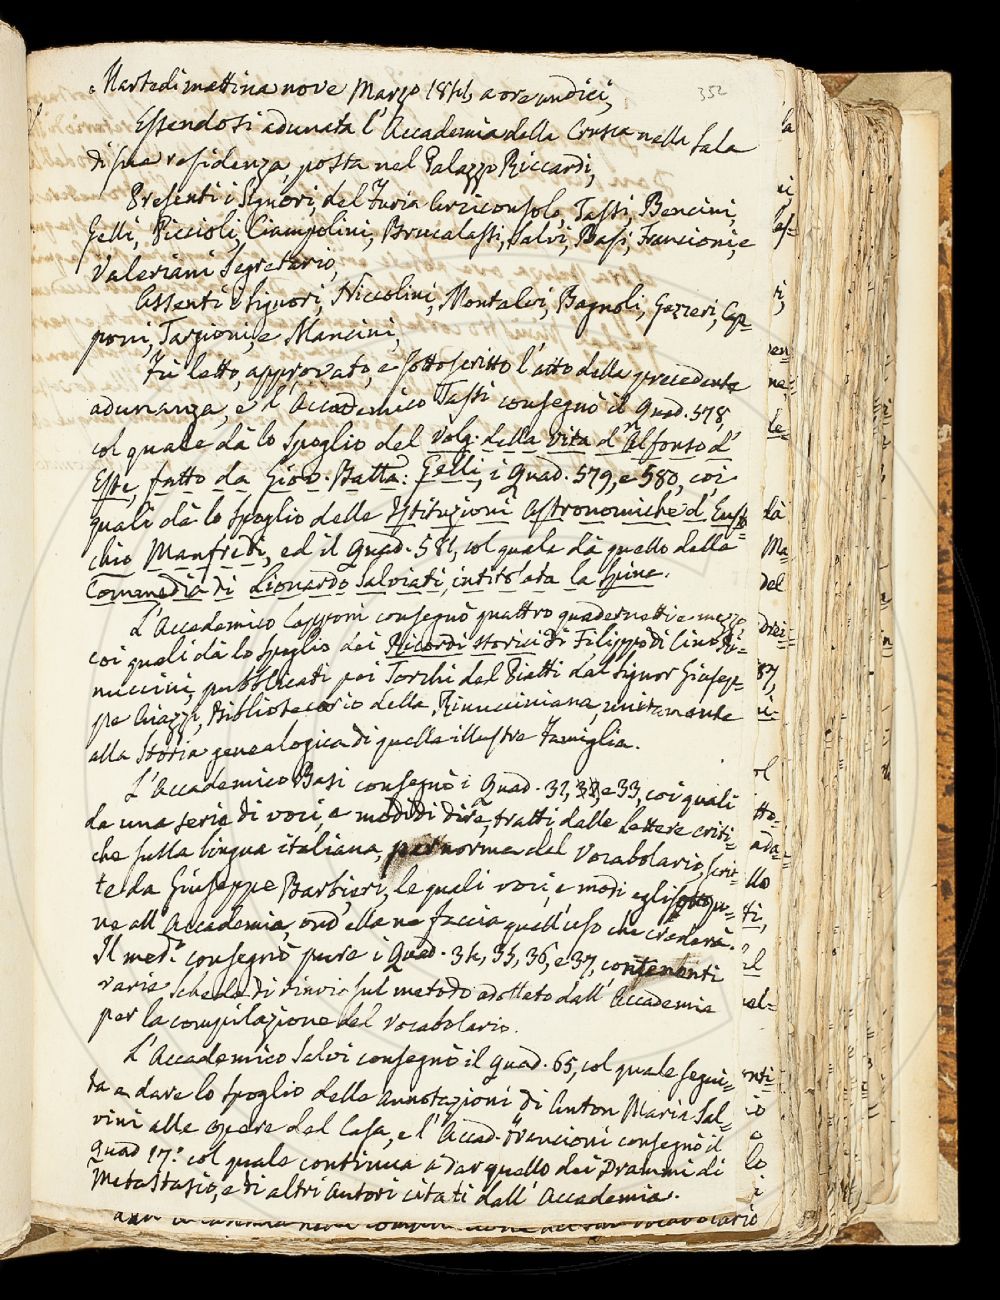 352
Martedì mattina nove Marzo 1841, a ore undici,
Essendosi adunata l'Accademia della Crusca nella Sala
di sua residenza, posta nel Palazzo Riccardi,
Presenti i Signori, del Furia Arciconsolo, Tassi, Bencini,
Gelli, Piccioli, Ciampolini, Brucalassi, Salvi, Basi, Francioni, e
Valeriani Segretario,
Assenti i Signori, Niccolini, Montalvi, Bagnoli, Gazzeri, Cap-
poni, Targioni, e Mancini,
Fu letto, approvato, e sottoscritto l'atto della precedente
adunanza, e l'Accademico Tassi consegnò il Quad. 578,
col quale dà lo spoglio del Volg. della Vita d'Alfonso d'
Este, fatto da Giov. Batta. Gelli, i Quad. 579, e 580, coi
quali dà lo spoglio delle Istituzioni Astronomiche d'Eusta-
chio Manfredi, ed il Quad. 581, col quale dà quello della
Commedia di Lionardo Salviati, intitolata la Spina.
L'Accademico Capponi consegnò quattro quadernetti e mezzo
coi quali dà lo spoglio dei Ricordi storici di Filippo di Cino Ri-
nuccini, pubblicati pei Torchi del Piatti dal Signor Giusep-
pe Aiazzi, Bibliotecario della Rinucciniana, unitamente
alla Storia genealogica di quella illustre Famiglia.
L'Accademico Basi consegnò i Quad. 31, 32, e 33, coi quali
da una serie di voci, e modi di dire, tratti dalle Lettere criti-
che sulla lingua italiana, per norma del Vocabolario, scrit-
te da Giuseppe Barbieri, le quali voci, e modi egli
ne all'Accademia, ond'ella ne faccia quell'uso che crederà.
Il med.º consegnò pure i Quad. 34, 35, 36, e 37, contenenti
varie schede di rinvio sul metodo adottato dall'Accademia
per la compilazione del Vocabolario.
L'Accademico Salvi consegnò il Quad. 65, col quale segui-
ta a dare lo spoglio delle annotazioni di Anton Maria Sal-
vini alle opere del Casa, e l'Accad. Francioni consegnò il
Quad 17.º col quale continua a dar quello dei Drammi di
Metastasio, e di altri Autori citati dall'Accademia.